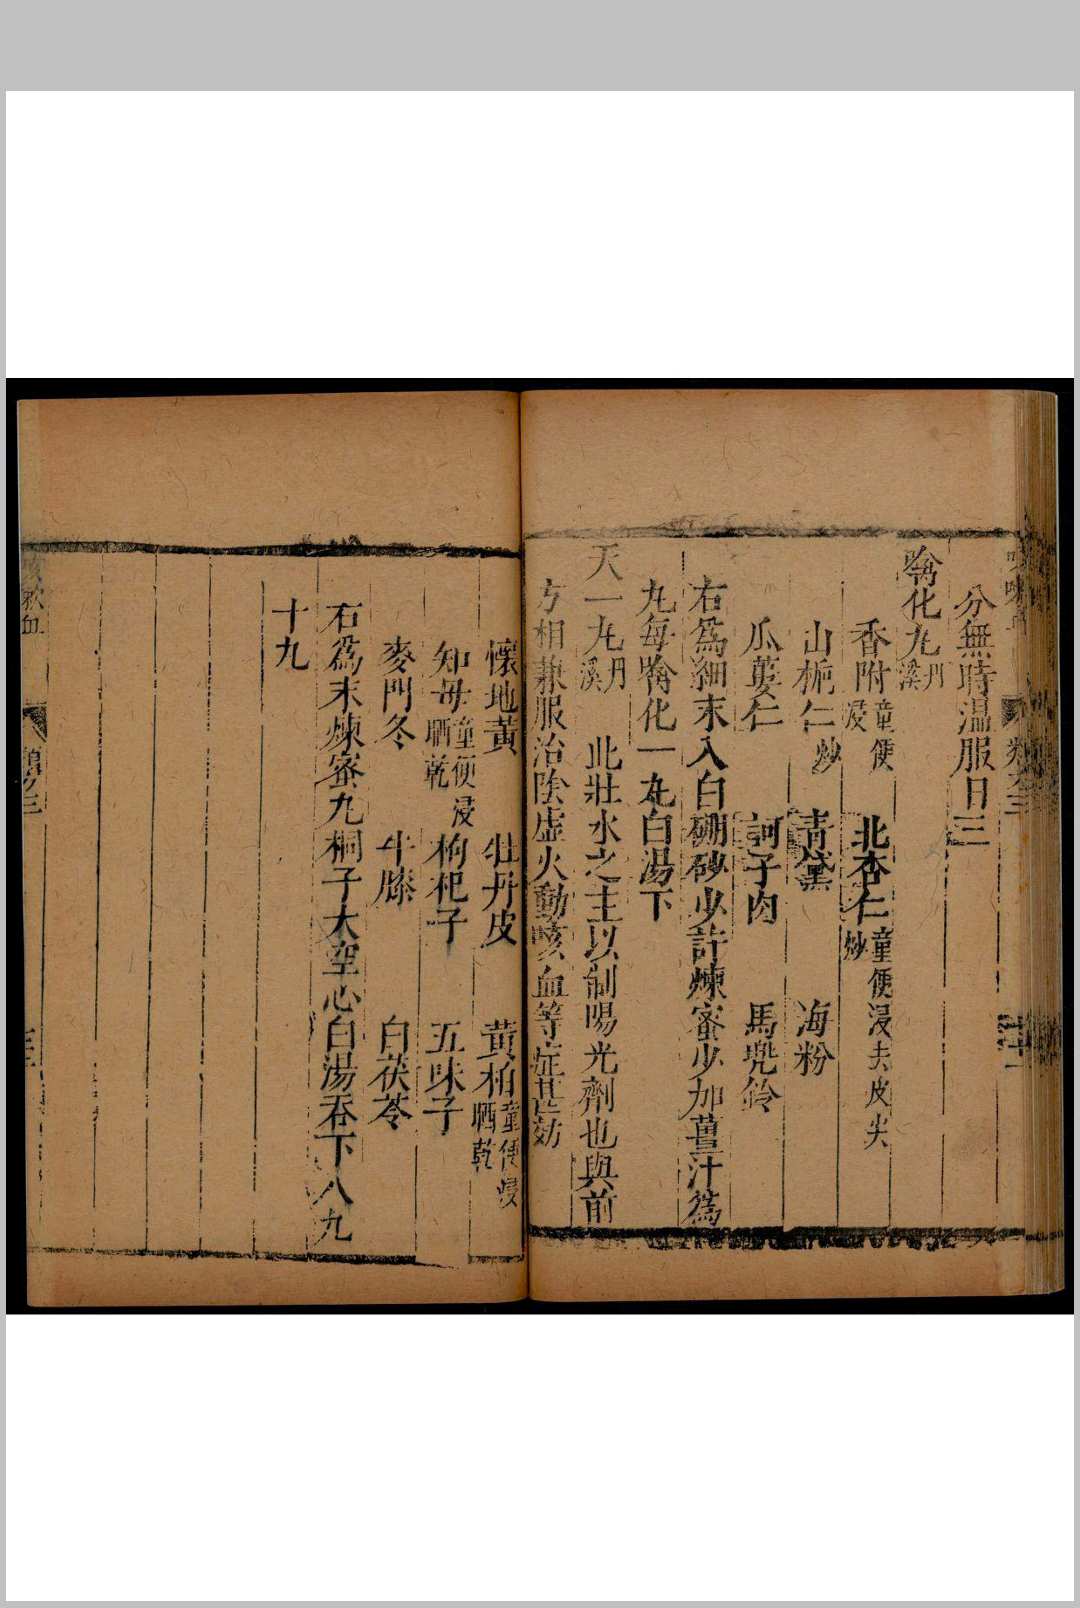 分無時温服日三
噙化丸丹溪
香附童便浸 北杏仁童便浸去皮尖炒
山梔仁炒 青黛 海粉
瓜蔞仁 訶子肉 馬兜鈴
右爲細末入白硼砂少許煉蜜少加薑汁爲
丸每噙化一丸白湯下
天一丸丹溪 此壯水之主以制陽光劑也與前
方相兼服治陰虛火動咳血等症甚効
懷地黃 牡丹皮 黃柏童便浸晒乾
知母童便浸晒乾 枸杞子 五味子
麥門冬 牛膝 白茯苓
右爲末煉蜜九桐子大空心白湯吞下八九
十九
欬血